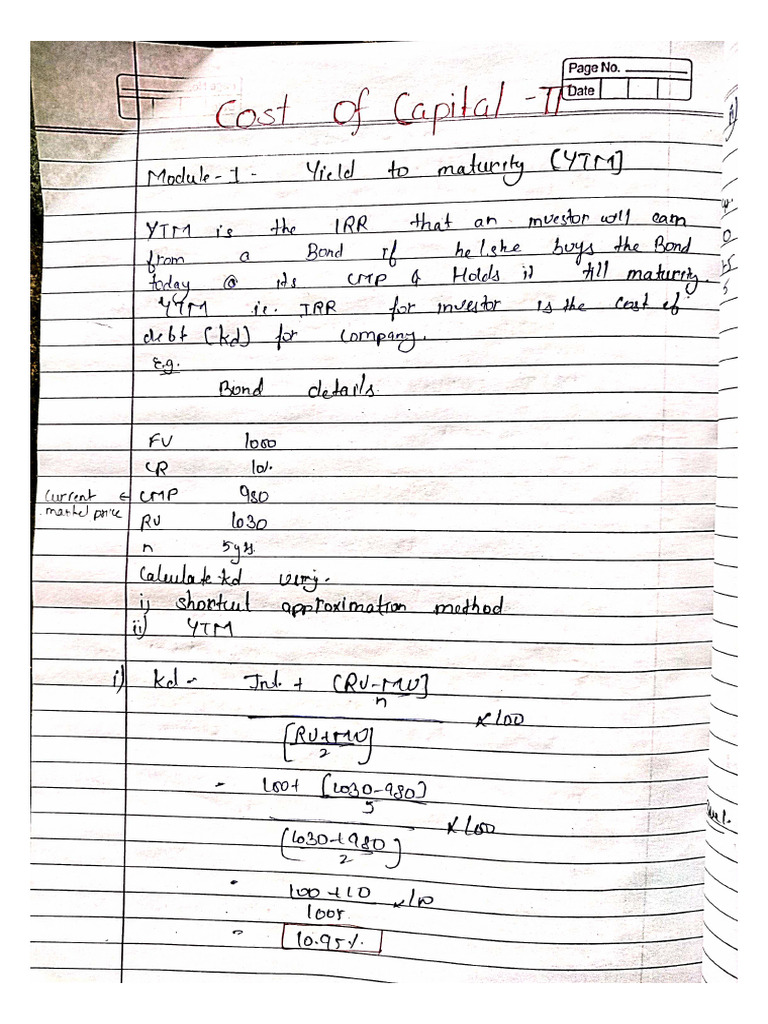 Page No.
Date
Cost of Capital - II
Module - 1 - Yield to maturity [YTM]
YTM is the IRR that an investor will earn
from a Bond if he/she buys the Bond
today @ its CMP & Holds it till maturity.
YTM ie. IRR for investor is the cost of
debt (kd) for company.
E.g.
Bond details.
FV 1000
CR 10%
Current market price ← CMP 980
RV 1030
n 5yrs.
Calculate kd using.
i) shortcut approximation method
ii) YTM
i) kd = Int. + [RV-MV]
n
x100
[RV+MV]
2
= 100+ [1030-980]
5
x100
(1030+980)
2
= 100 + 10 x100
1005
= 10.95%